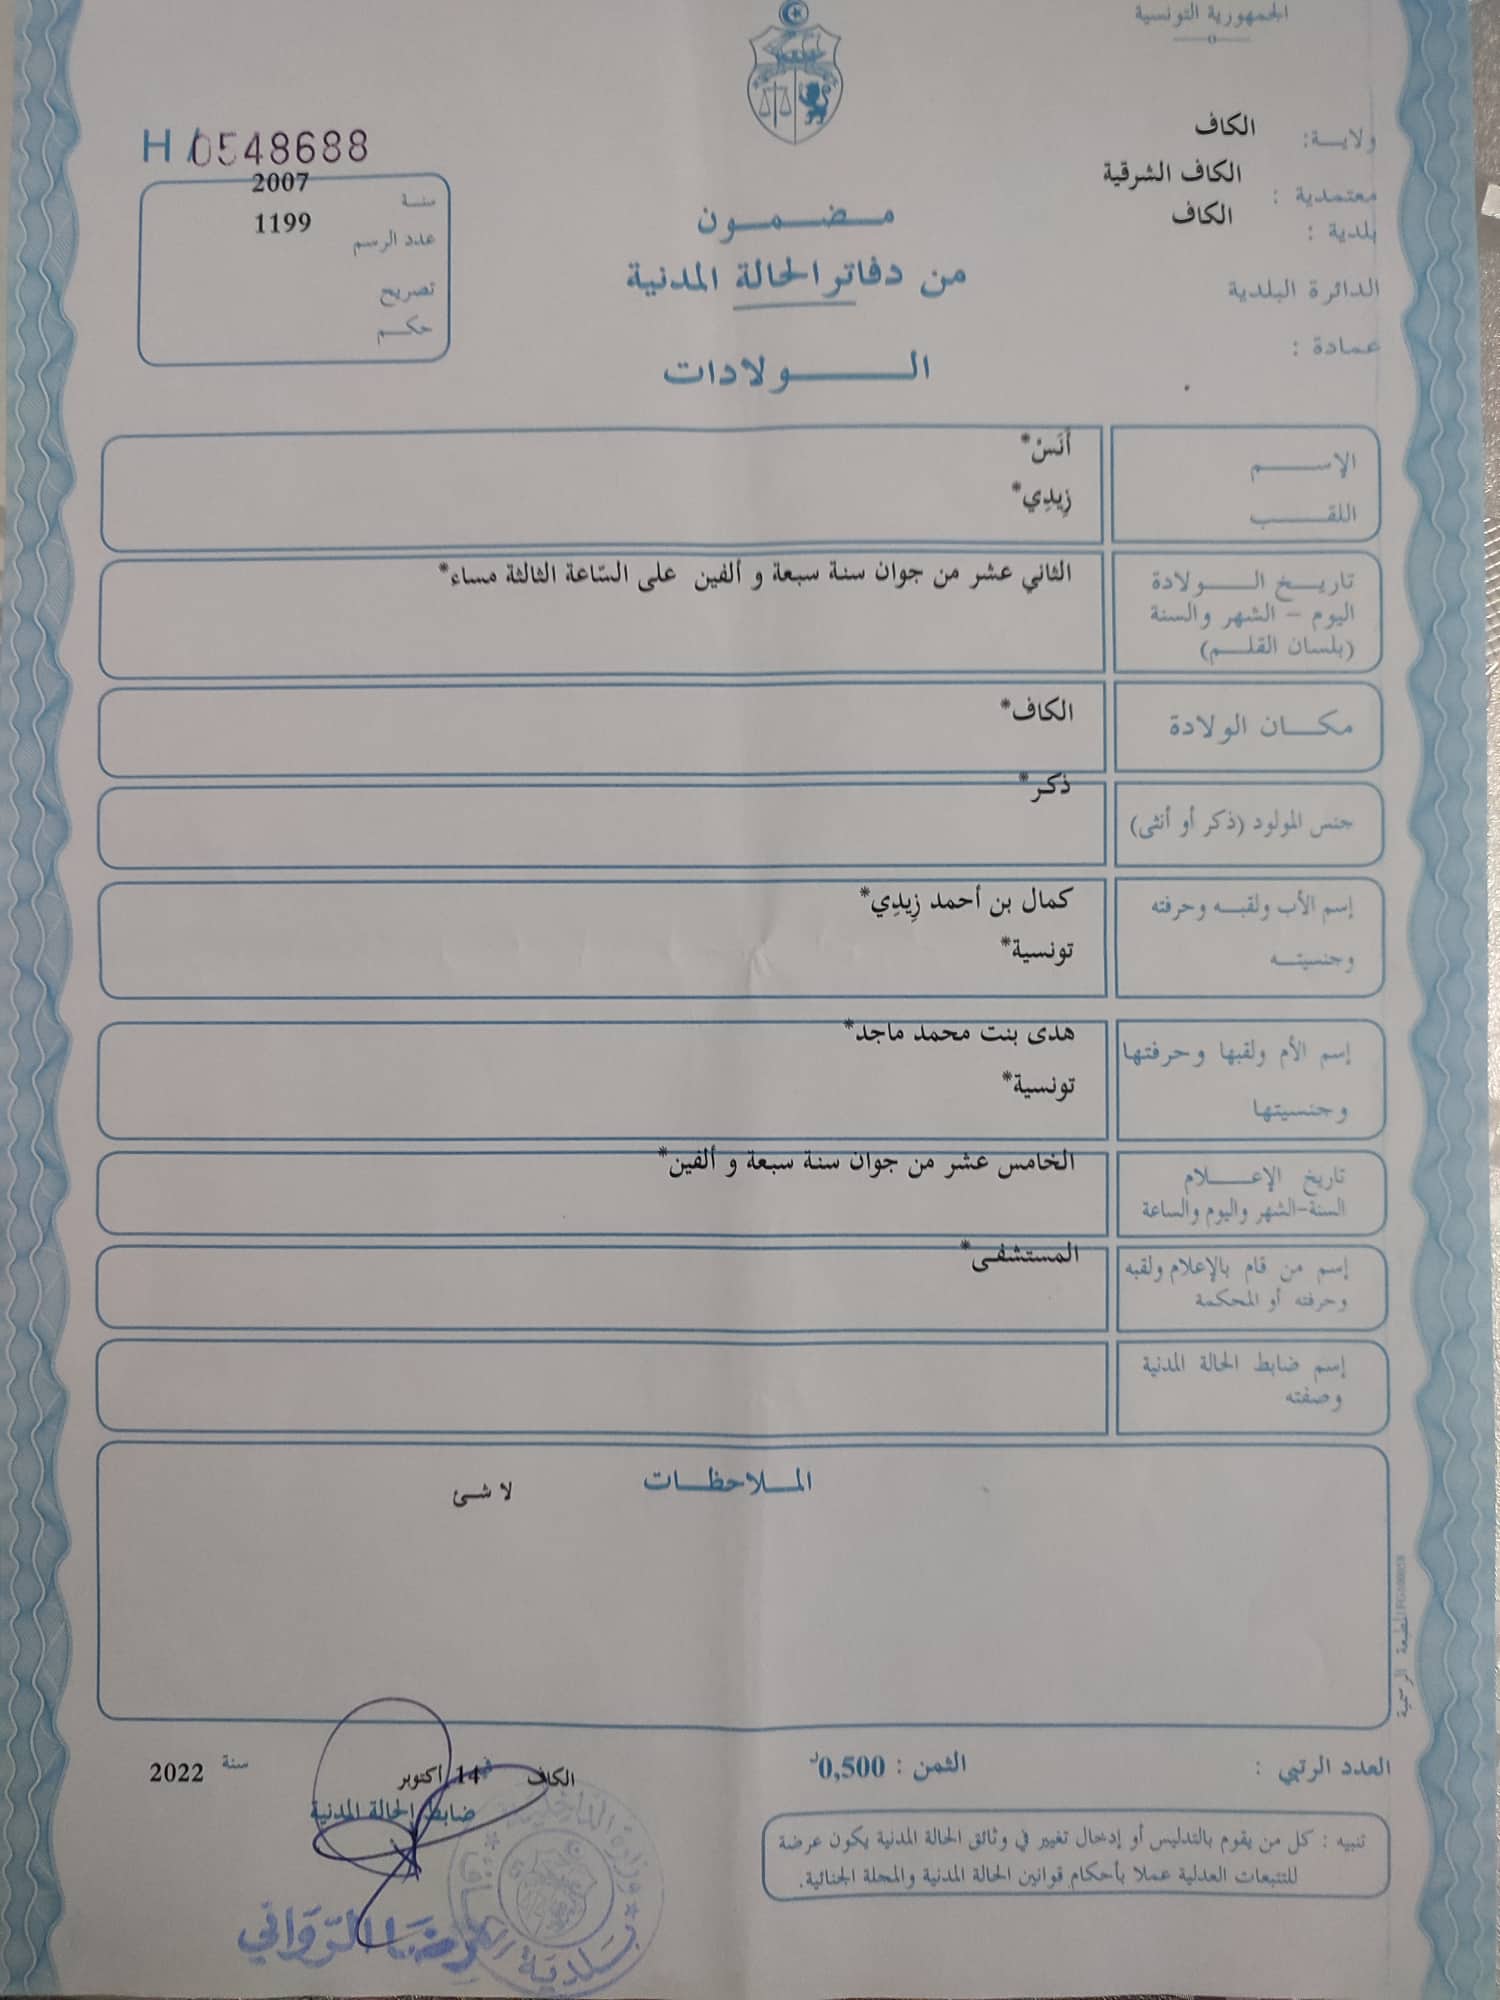 الجمهورية التونسية
ولاية: الكاف
معتمدية : الكاف الشرقية
بلدية : الكاف
الدائرة البلدية
عمادة :
H/0548688
سنة 2007
عدد الرسم 1199
تصريح
حكم
مضمون
من دفاتر الحالة المدنية
الولادات
الإسم أَنَسْ*
اللقب زِيدِي*
تاريخ الولادة الثاني عشر من جوان سنة سبعة و ألفين على السّاعة الثالثة مساء*
اليوم - الشهر والسنة
(بلسان القلم)
مكان الولادة الكاف*
جنس المولود (ذكر أو أنثى) ذكر*
إسم الأب ولقبه وحرفته كمال بن أحمد زِيدِي*
وجنسيته تونسية*
إسم الأم ولقبها وحرفتها هدى بنت محمد ماجد*
وجنسيتها تونسية*
تاريخ الإعلام الخامس عشر من جوان سنة سبعة و ألفين*
السنة-الشهر واليوم والساعة
إسم من قام بالإعلام ولقبه المستشفى*
وحرفته أو المحكمة
إسم ضابط الحالة المدنية
وصفته
الملاحظات
لا شئ
المطبعة الرسمية
العدد الرتبي :
الثمن : 0,500د
الكاف في 14 أكتوبر سنة 2022
ضابط الحالة المدنية
تنبيه : كل من يقوم بالتدليس أو إدخال تغيير في وثائق الحالة المدنية يكون عرضة
للتتبعات العدلية عملا بأحكام قوانين الحالة المدنية والمجلة الجنائية.
وزارة الداخلية
بلدية الكاف